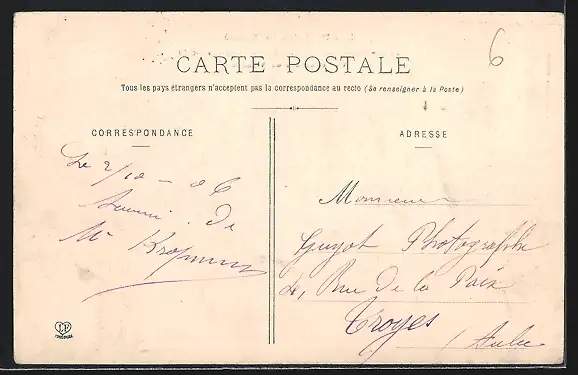 6
CARTE POSTALE
Tous les pays étrangers n'acceptent pas la correspondance au recto (Se renseigner à la Poste)
CORRESPONDANCE
Le 2/10 - 06
Souvenir de
Mr
ADRESSE
Monsieur
Guyot Photographe
Rue de la Paix
Troyes
/ Aube